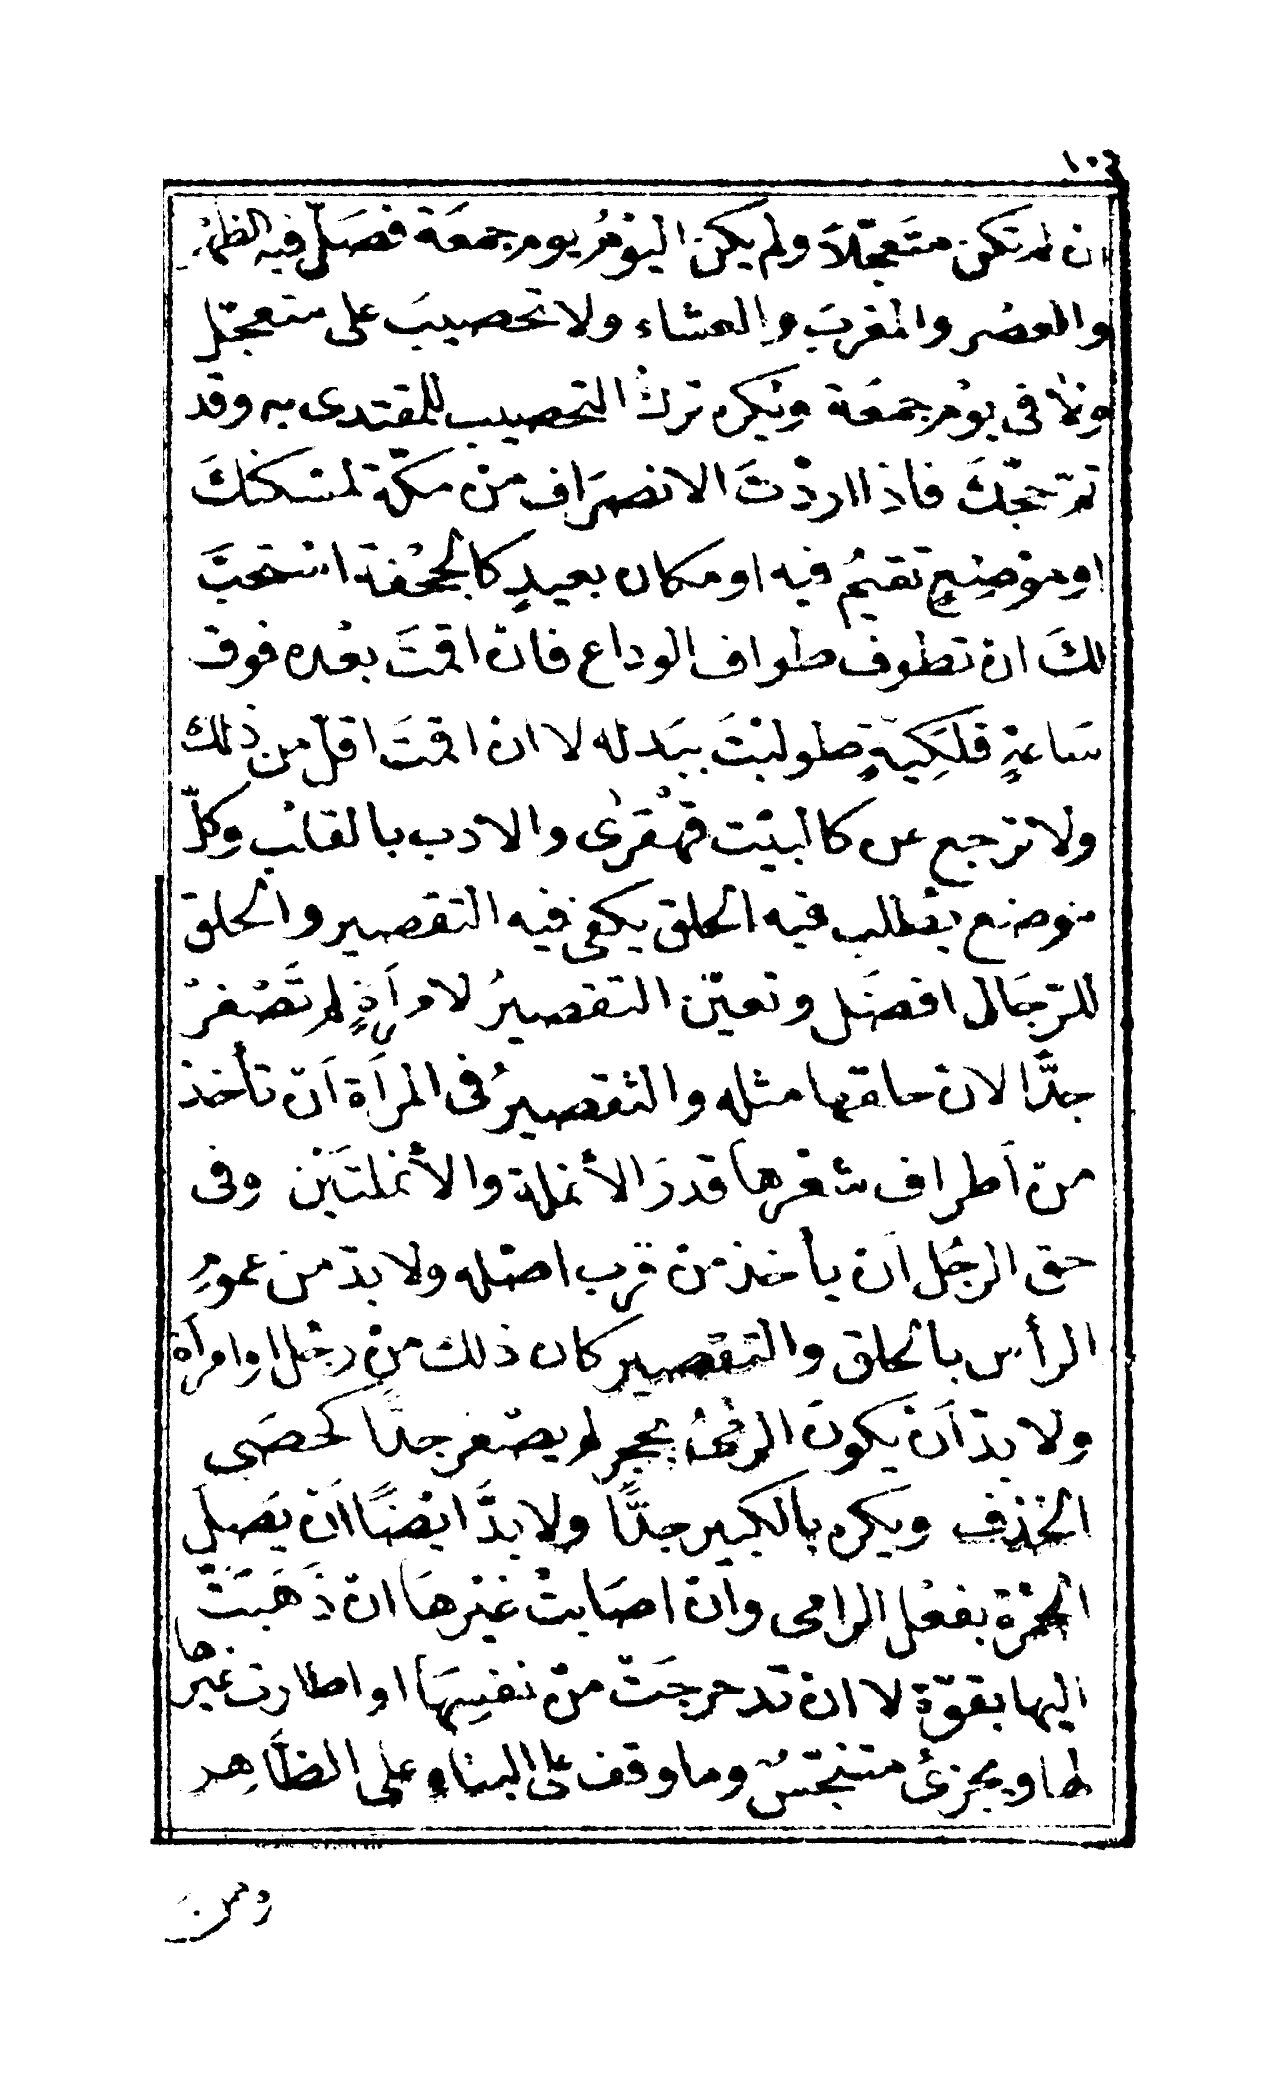 ١٠٤
ان لم تكن متعجّلاً ولم يكن اليوْمُ يوم جمعَة فصَلّ فيه الظهْر
والعصْر والمغربَ والعشاء ولا تحصيبَ على متعجّل
ولا فى يوْم جمعَة ويُكره تركُ التحصيب للمقتدى به وقد
تمّ حجّكَ فاذا اردْتَ الانصرَاف منْ مكّة لمسْكنكَ
او موْضِعٍ تقيمُ فيه او مكان بعيدٍ كالجحْفة اسْتحبَّ
لكَ ان تطوف طواف الوداع فان اقمتَ بعْده فوق
سَاعةٍ فلكِيّةٍ طولبْتَ ببَدله لا ان اقمتَ اقلّ من ذلك
ولا ترجع عن كالبيْت قهْقرٰى والادب بالقلْب وكلّ
موضع يطْلب فيه الحلق يكفى فيه التقصير والحلق
للرّجَال افضَل وتعيّن التقصيرُ لامرأةٍ لم تَصْغرْ
جدَّا لان حلقها مثله والتقصيرُ فى المرأة أن تأخذ
من أطراف شعْرها قدرَ الأنملة والأنملتَيْن وفى
حق الرجُل أن يأخذ منْ قرب اصْله ولا بدّ من عموم
الرأس بالحلق والتقصير كان ذلك منْ رجُل او امرأة
ولا بدّ أن يَكونَ الرمْىُ بحجر لم يصْغر جدّا كحصَى
الخذف ويكره بالكبير جدًّا ولا بدَّ ايْضًا أن يصَل
الجمْرة بفعْل الرامى وان اصَابتْ غيْرهَا ان ذَهَبَتْ
اليها بقوّة لا ان تدحرجَتْ منْ نفسِهَا او اطارت غيْرها
لها ويجزئُ متنجّسٌ وما وقف على البناء على الظاهر
ومن